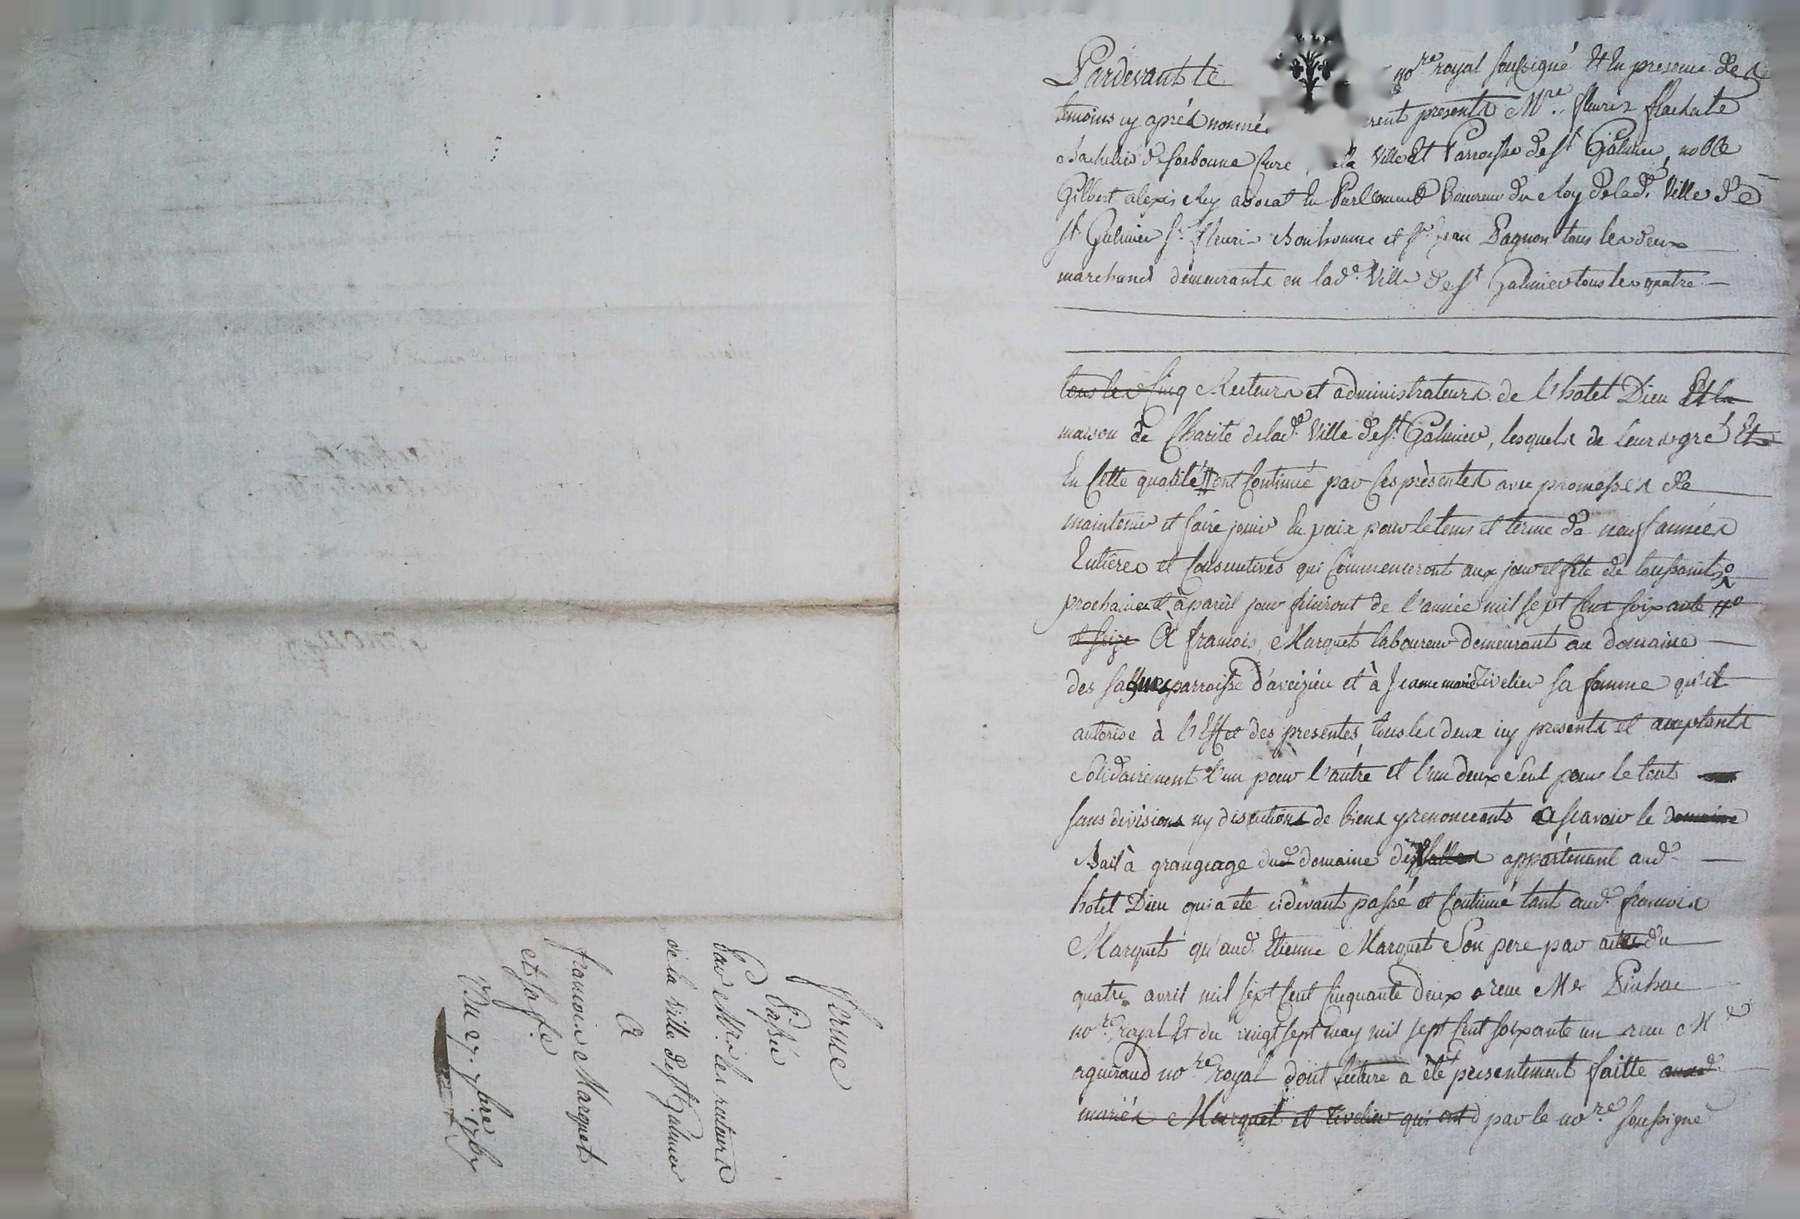 Pardevant le no.re royal soussigné Et En presence des
temoins cy aprés nommés furent presents M.re fleuris flachate
bachelier de sorbonne Curé de la Ville Et Parroisse de S.t Galmier, noble
Gilbert alexis Rey avocat En Parlement Procureur du Roy de lad.e Ville de
S.t Galmier S.r fleuris bonhomme et S.r jean Pagnon tous les deux
marchands demeurants en lad.e Ville de S.t Galmier tous les quatre
tous les Cinq Recteurs et administrateurs de l'hotel Dieu Et la
maison de Charité de lad.e Ville de S.t Galmier, lesquels de leurs gré Et
En Cette qualité ont Continué par Ces présentes avec promesses de
maintenir et faire jouir En paix pour le tems et terme de neuf années
Entières et Consecutives qui Commenceront aux jour et fête de toussaints
prochaine et à pareil jour finiront de l'année mil sept Cent soixante
et seize A francois Marquet laboureur demeurant au domaine
des parroisse d'aveizieu et à Jeanne marie Tivelier sa femme qu'il
autorise à l'Effet des presentes tous les deux icy presents et acceptants
Solidairement l'un pour l'autre et l'un deux Seul pour le tout
sans divisions ny discutions de biens y renonceants a scavoir le domaine
Bail à grangeage dud.t domaine des salles appartenant aud.t
hotel Dieu qui a eté cidevant passé et Continué tant aud.t francois
Marquet qu'aud.t Etienne Marquet Son pere par actes du
quatre avril mil sept Cent Cinquante deux receu M.e Pinhac
no.re royal Et du vingt sept may mil sept Cent soixante un receu M.e
aguiraud no.re royal dont lecture a été presentement faitte auxd.
mariés Marquet et Tivelier qui ont par le no.re soussigné
ferme
Passée
Par M.rs les recteurs
de la Ville de S.t Galmier
A
francois Marquet
et sa fe.
Du 27. 7bre 1767